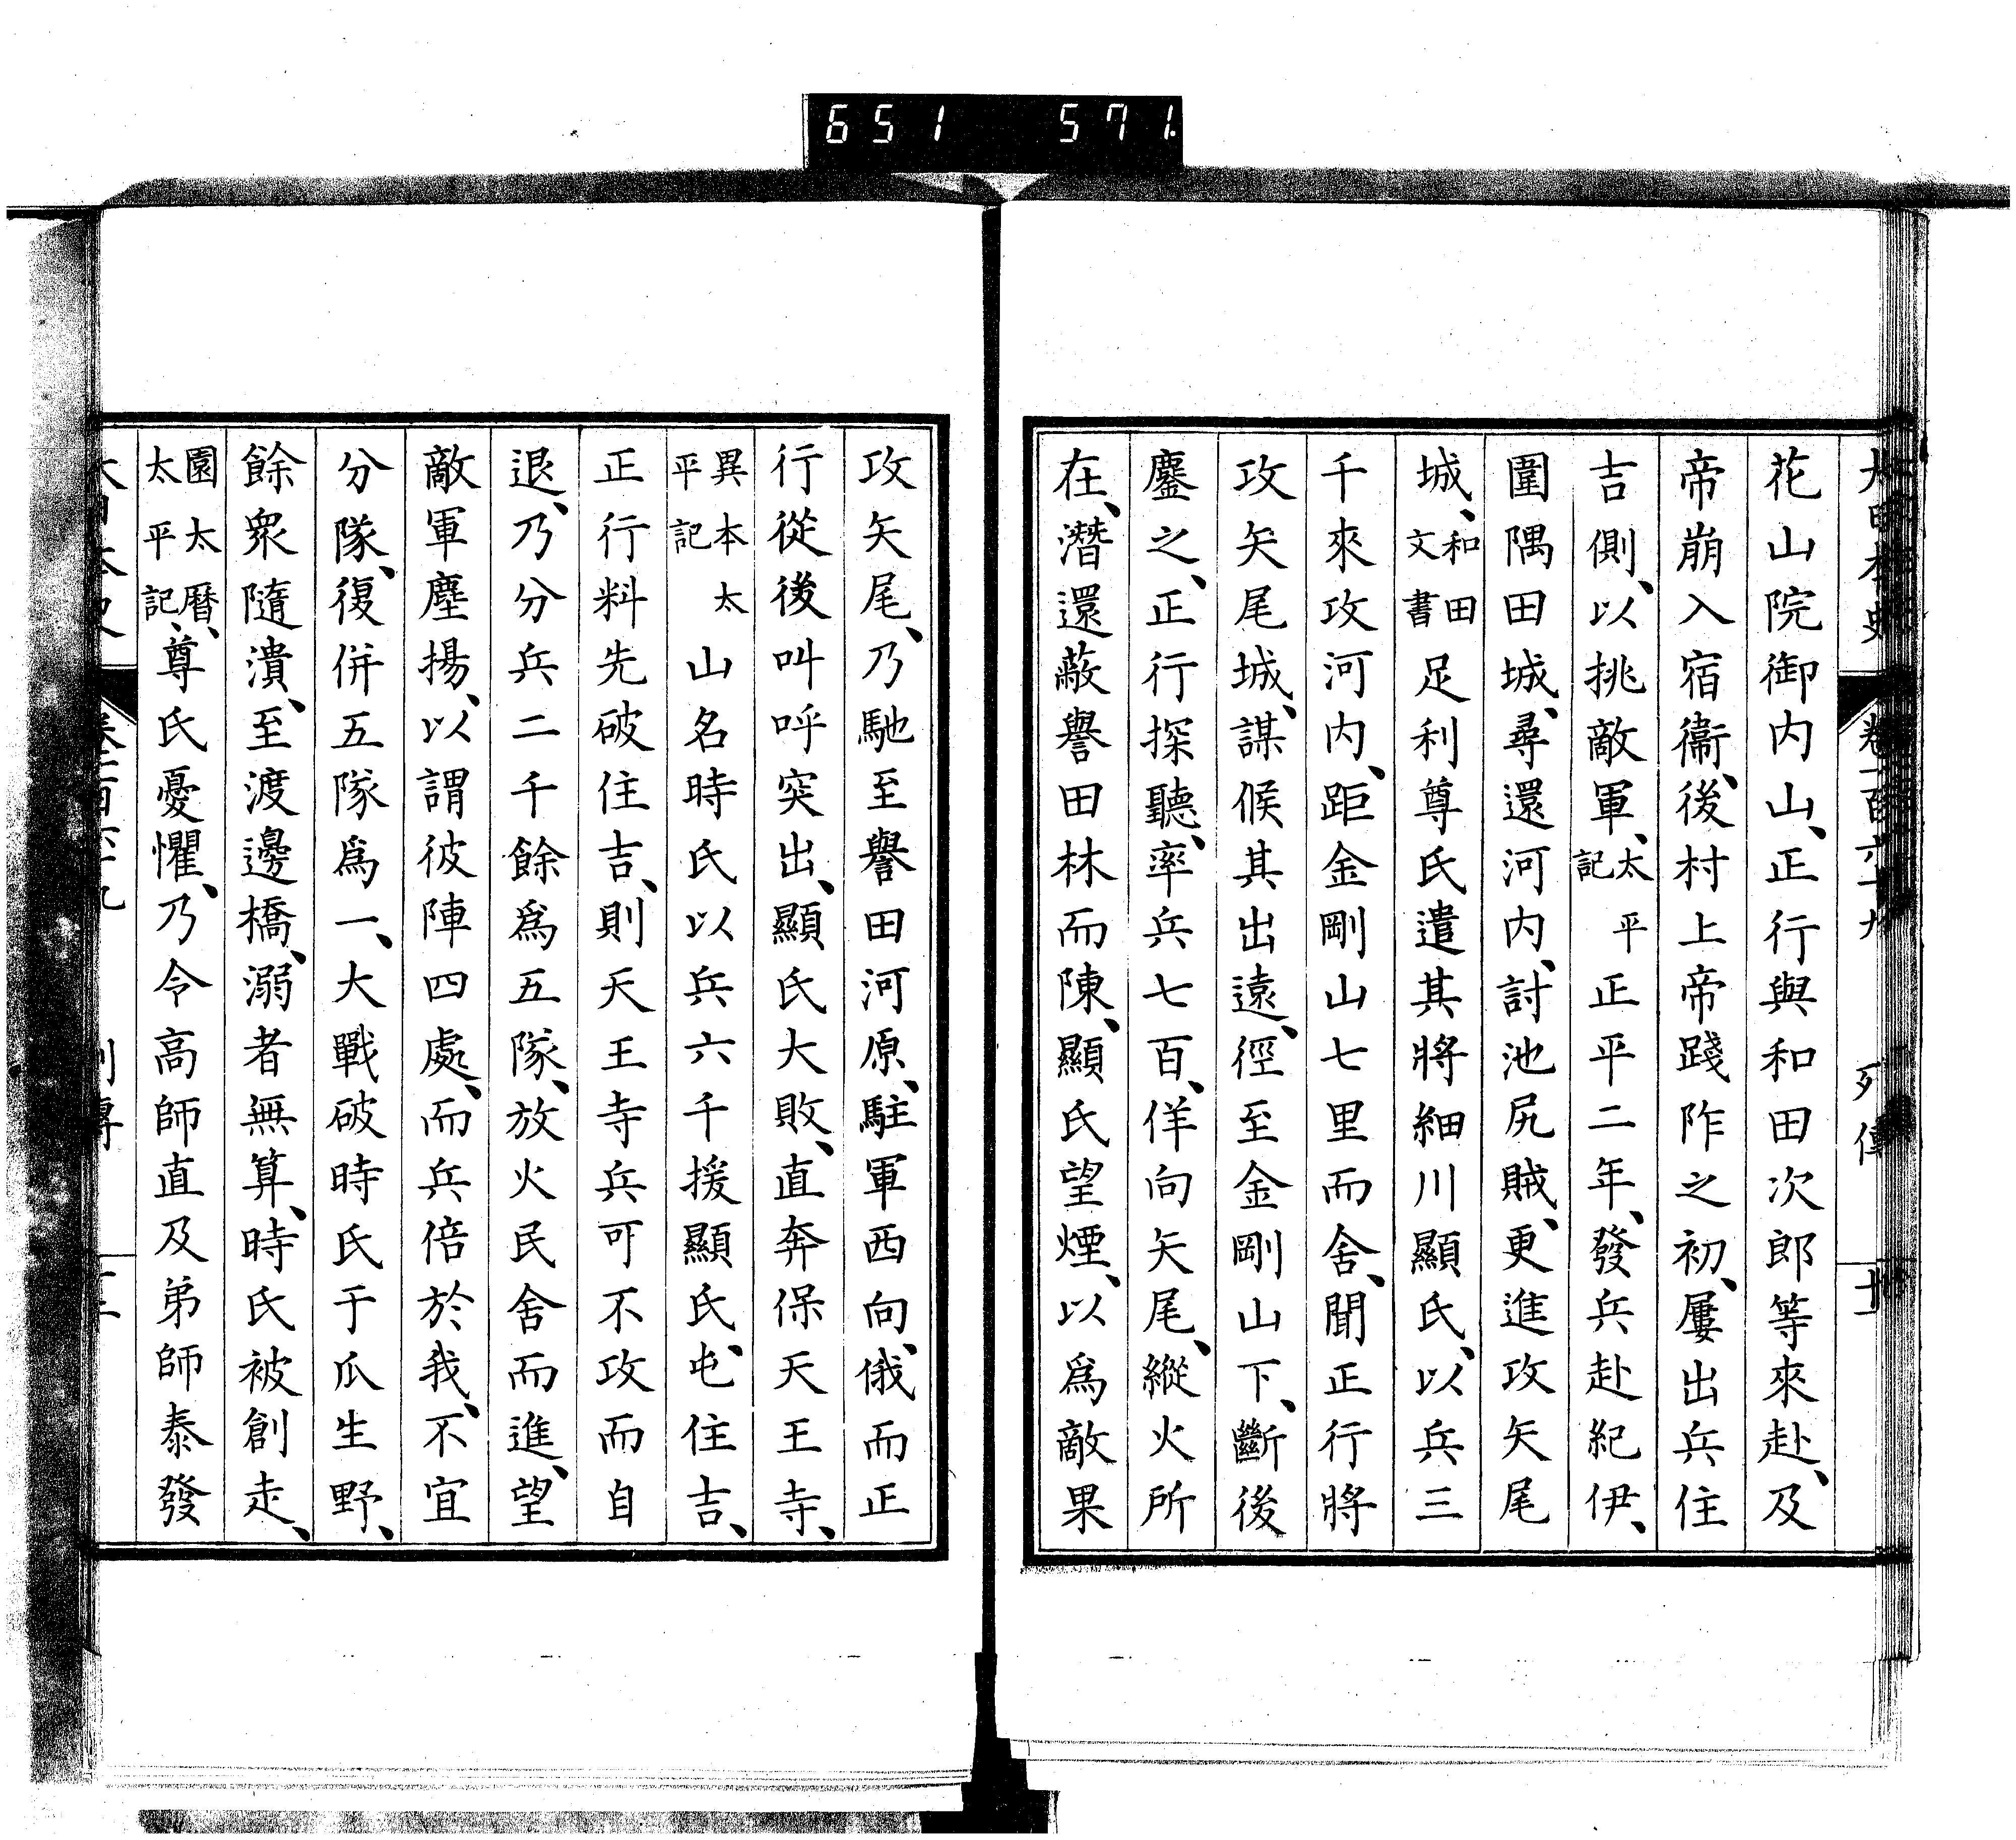 651 571
大日本史 卷一百六十九 列傳 十
花山院御内山、正行與和田次郎等來赴、及
帝崩入宿衞、後村上帝踐阼之初、屢出兵住
吉側、以挑敵軍、太平記正平二年、發兵赴紀伊、
圍隅田城、尋還河内、討池尻賊、更進攻矢尾
城、和田文書足利尊氏遣其將細川顯氏、以兵三
千來攻河内、距金剛山七里而舍、聞正行將
攻矢尾城、謀候其出遠、徑至金剛山下、斷後
鏖之、正行探聽、率兵七百、佯向矢尾、縱火所
在、潛還蔽譽田林而陳、顯氏望煙、以爲敵果
攻矢尾、乃馳至譽田河原、駐軍西向、俄而正
行從後叫呼突出、顯氏大敗、直奔保天王寺、
異本太平記山名時氏以兵六千援顯氏、屯住吉、
正行料先破住吉、則天王寺兵可不攻而自
退、乃分兵二千餘爲五隊、放火民舍而進、望
敵軍塵揚、以謂彼陣四處、而兵倍於我、不宜
分隊、復併五隊爲一、大戰破時氏于瓜生野、
餘衆隨潰、至渡邊橋、溺者無算、時氏被創走、
園太曆、太平記、尊氏憂懼、乃令高師直及弟師泰發